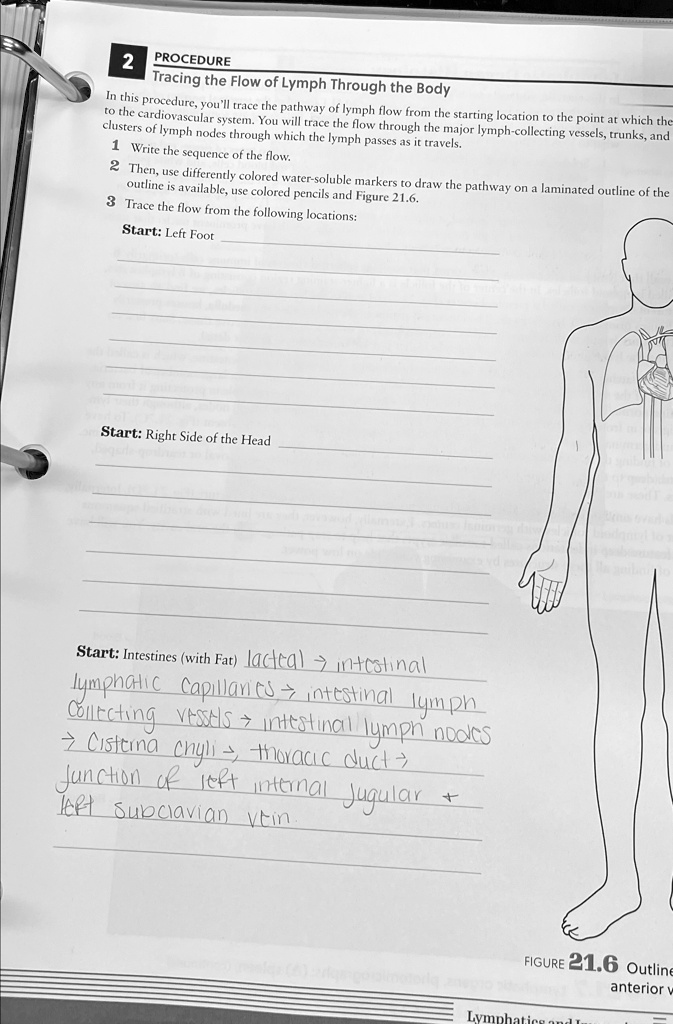 2 PROCEDURE
Tracing the Flow of Lymph Through the Body
In this procedure, you'll trace the pathway of lymph flow from the starting location to the point at which the
to the cardiovascular system. You will trace the flow through the major lymph-collecting vessels, trunks, and
clusters of lymph nodes through which the lymph passes as it travels.
1 Write the sequence of the flow.
2 Then, use differently colored water-soluble markers to draw the pathway on a laminated outline of the
outline is available, use colored pencils and Figure 21.6.
3 Trace the flow from the following locations:
Start: Left Foot
Start: Right Side of the Head
Start: Intestines (with Fat) lacteal → intestinal
lymphatic capillaries → intestinal lymph
collecting vessels → intestinal lymph nodes
→ Cisterna chyli → thoracic duct →
junction of left internal jugular +
left subclavian vein.
FIGURE 21.6 Outline
anterior v
Lymphatics and